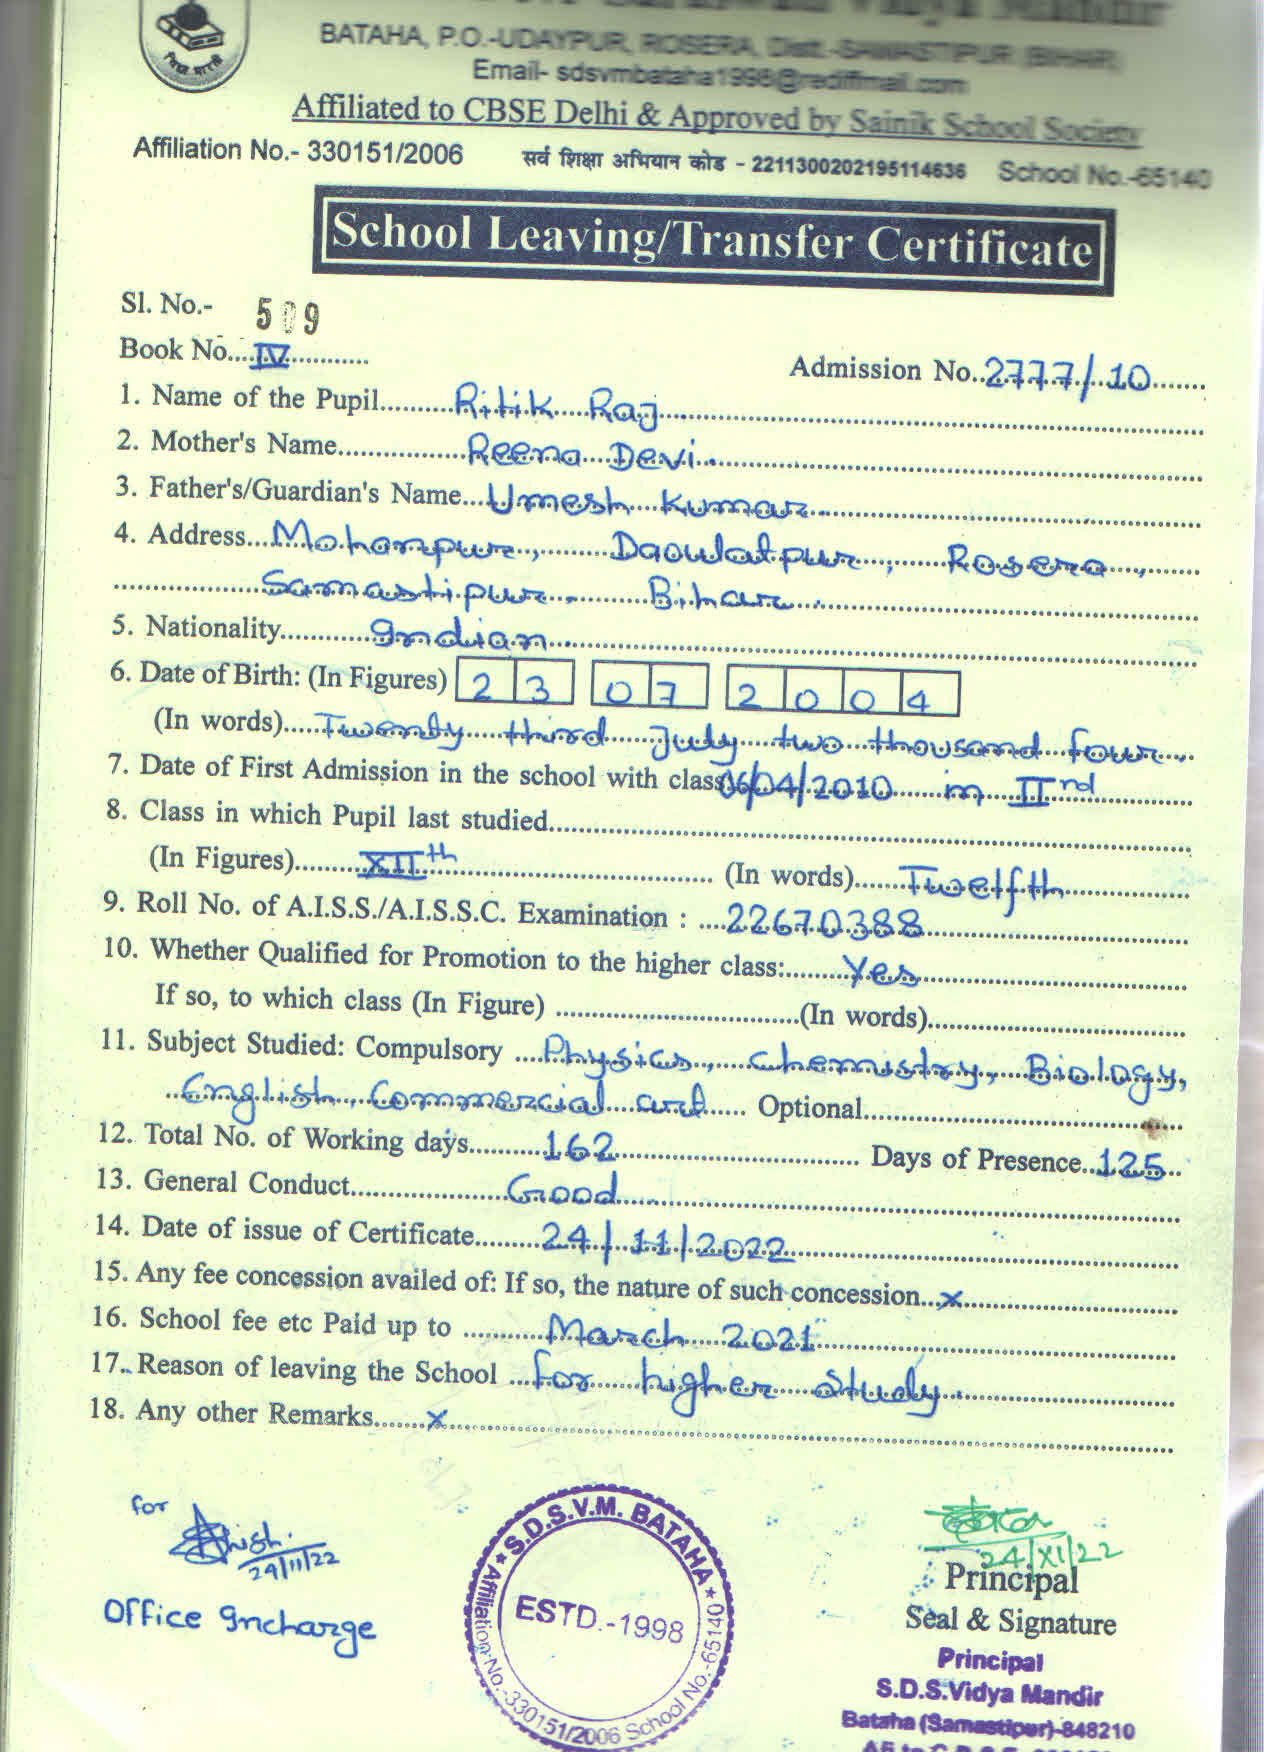 विद्या भारती
Vidya Mandir
BATAHA, P.O.-UDAYPUR, ROSERA, Distt.-SAMASTIPUR (BIHAR)
Email- sdsvmbataha1998@rediffmail.com
Affiliated to CBSE Delhi & Approved by Sainik School Society
Affiliation No.- 330151/2006 सर्व शिक्षा अभियान कोड - 2211300202195114636 School No.-65140
School Leaving/Transfer Certificate
Sl. No.- 509
Book No....IV............ Admission No..2777/10.......
1. Name of the Pupil.........Ritik Raj..........
2. Mother's Name...............Reena Devi..........
3. Father's/Guardian's Name...Umesh Kumar..........
4. Address...Mohanpur, Daoulatpur, Rosera,
Samastipur Bihar
5. Nationality............Indian..........
6. Date of Birth: (In Figures) 23 07 2004
(In words).....Twenty third July two thousand four.....
7. Date of First Admission in the school with class 06/04/2010 in IInd
8. Class in which Pupil last studied..........
(In Figures).........XIIth.......... (In words)......Twelfth..........
9. Roll No. of A.I.S.S./A.I.S.S.C. Examination : ....22670388..........
10. Whether Qualified for Promotion to the higher class:.........Yes..........
If so, to which class (In Figure) ..........(In words)..........
11. Subject Studied: Compulsory ....Physics, chemistry, Biology,
English, Commercial art...... Optional..........
12. Total No. of Working days..........162.......... Days of Presence..125..
13. General Conduct..........Good..........
14. Date of issue of Certificate.........24/11/2022..........
15. Any fee concession availed of: If so, the nature of such concession...x..........
16. School fee etc Paid up to ..........March 2021..........
17. Reason of leaving the School ...for higher study..........
18. Any other Remarks.......x..........
for
24/11/22
Office Incharge
S.D.S.V.M. BATAHA
ESTD.-1998
Affiliation-No.-330151/2006 School No.-65140
24/XI/22
Principal
Seal & Signature
Principal
S.D.S.Vidya Mandir
Bataha (Samastipur)-848210